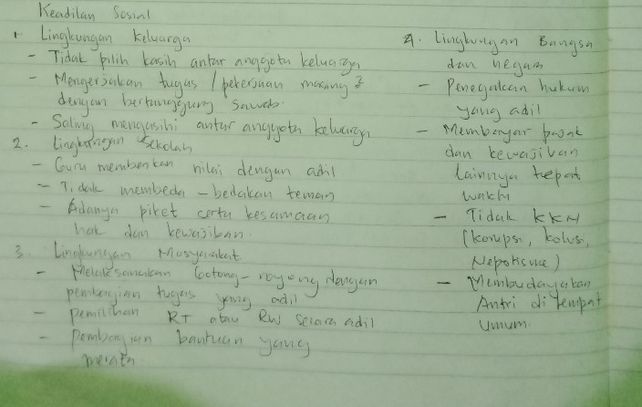 Keadilan Sosial
1. Lingkungan keluarga
- Tidak pilih kasih antar anggota keluarga
- Mengerjakan tugas / pekerjaan masing2
dengan bertanggung Jawab.
- Saling mengasihi antar anggota keluarga
2. Lingkungan Sekolah
- Guru memberikan nilai dengan adil
- Tidak membeda - bedakan teman
- Adanya piket serta kesamaan
hak dan kewajiban.
3. Lingkungan Masyarakat
- Melaksanakan Gotong-royong dengan
pembagian tugas yang adil
- Pemilihan RT atau RW secara adil
- Pembagian bantuan yang
merata
4. Lingkungan Bangsa
dan negara
- Penegakan hukum
yang adil
- Membayar pajak
dan kewajiban
lainnya tepat
waktu
- Tidak KKN
(korupsi, kolusi,
Nepotisme)
- Membudayakan
Antri di tempat
Umum.